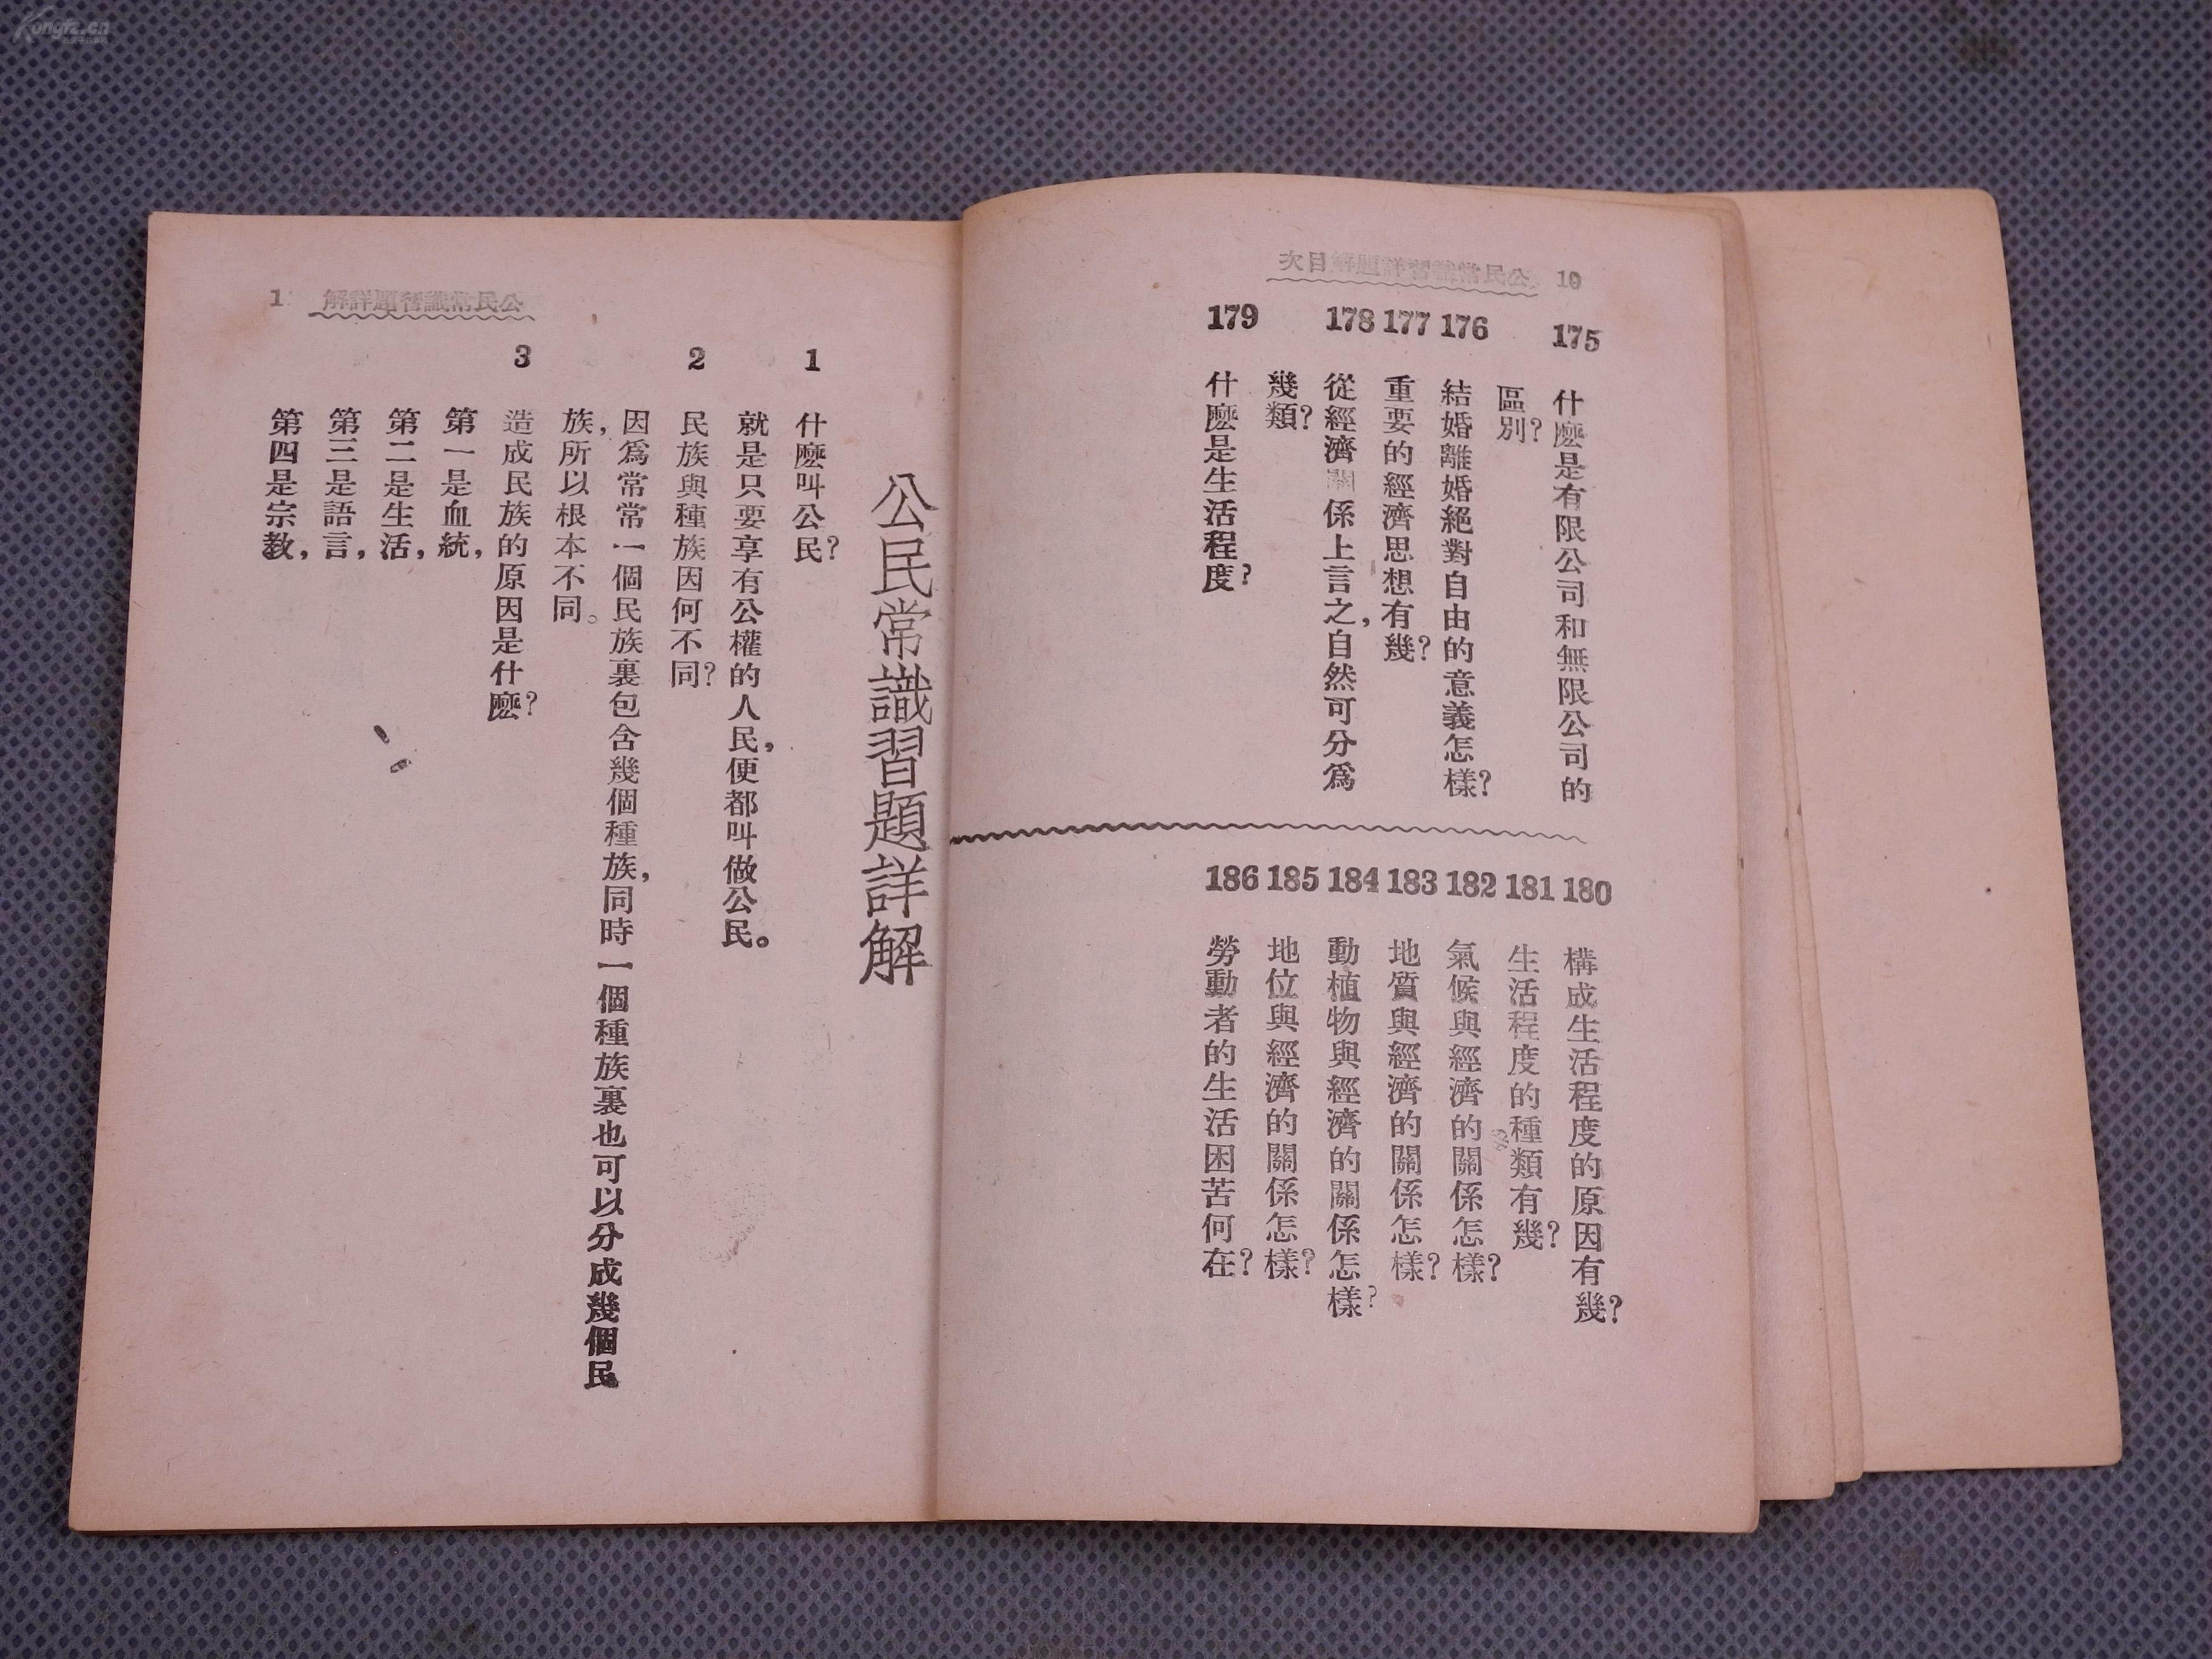 Kongfz.cn
公民常識習題詳解目次 10
175 什麽是有限公司和無限公司的
區別?
176 結婚離婚絕對自由的意義怎樣?
177 重要的經濟思想有幾?
178 從經濟關係上言之,自然可分爲
幾類?
179 什麽是生活程度?
180 構成生活程度的原因有幾?
181 生活程度的種類有幾?
182 氣候與經濟的關係怎樣?
183 地質與經濟的關係怎樣?
184 動植物與經濟的關係怎樣?
185 地位與經濟的關係怎樣?
186 勞動者的生活困苦何在?
公民常識習題詳解 1
公民常識習題詳解
1 什麽叫公民?
就是只要享有公權的人民,便都叫做公民。
2 民族與種族因何不同?
因爲常常一個民族裏包含幾個種族,同時一個種族裏也可以分成幾個民
族,所以根本不同。
3 造成民族的原因是什麽?
第一是血統,
第二是生活,
第三是語言,
第四是宗教,